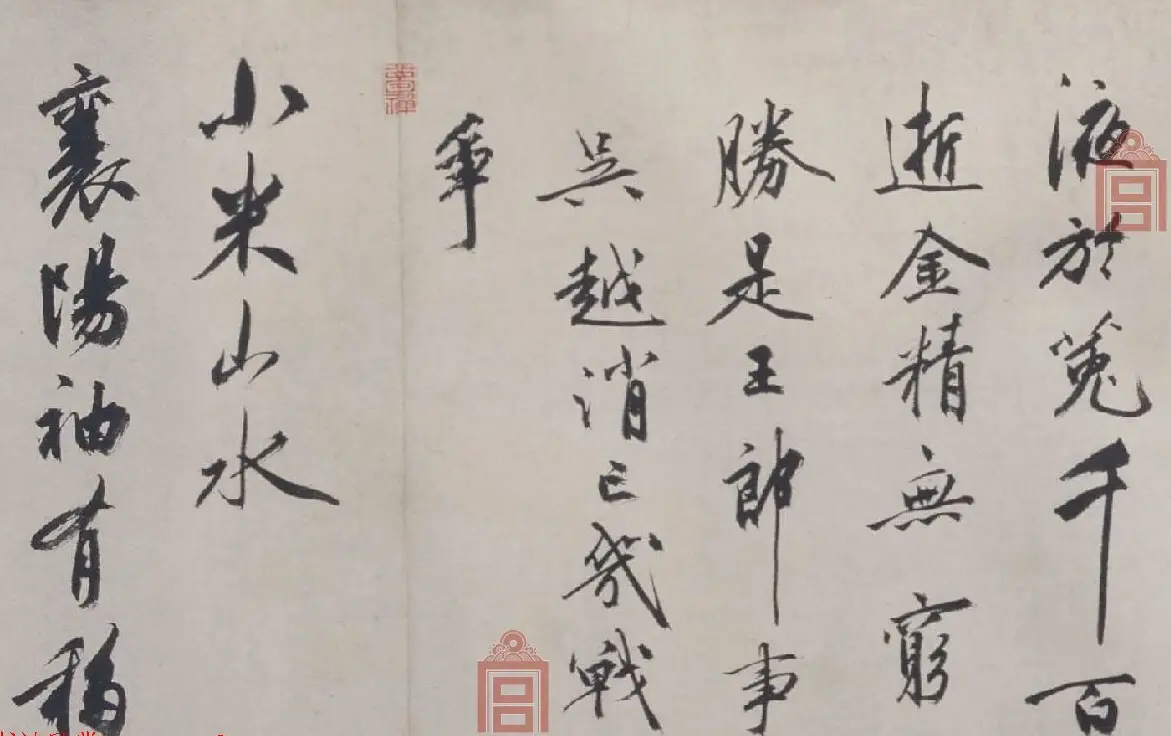 液於菟千百
逝金精無窮
勝是王郎事
吳越消亡幾戰
爭
小米山水
襄陽袖有移